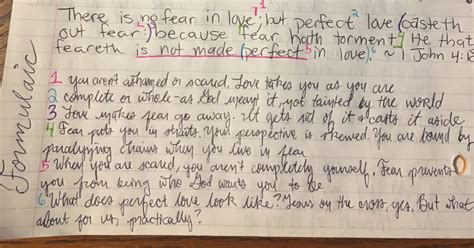 There is no fear in love;1 but perfect2 love (casteth
out fear:)3 because fear hath torment.4 He that
feareth is not made (perfect5 in love).6 ~ 1 John 4:18
Formulaic
1 you aren't ashamed or scared. Love takes you as you are
2 complete or whole - as God meant it, not tainted by the world
3 Love makes fear go away. It gets rid of it & casts it aside
4 Fear puts you in straits. Your perspective is skewed. You are bound by
paralyzing chains when you live in fear
5 When you are scared, you aren't completely yourself. Fear prevents
you from being who God wants you to be
6 What does perfect love look like? Jesus on the cross, yes. But what
about for us, practically?